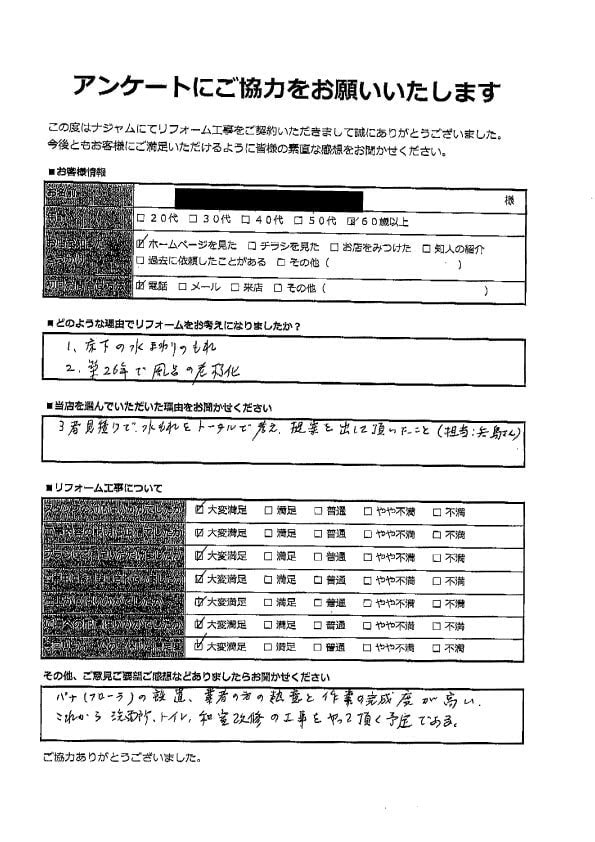 アンケートにご協力をお願いいたします
この度はナジャムにてリフォーム工事をご契約いただきまして誠にありがとうございました。
今後ともお客様にご満足いただけるように皆様の素直な感想をお聞かせください。
■お客様情報
様
□20代 □30代 □40代 □50代 ☑60歳以上
☑ホームページを見た □チラシを見た □お店をみつけた □知人の紹介
□過去に依頼したことがある □その他( )
☑電話 □メール □来店 □その他( )
■どのような理由でリフォームをお考えになりましたか?
1、床下の水まわりのもれ
2、築26年で風呂の老朽化
■当店を選んでいただいた理由をお聞かせください
3者見積りで、水もれをトータルで考え、提案を出して頂いたこと(担当:兵島さん)
■リフォーム工事について
☑大変満足 □満足 □普通 □やや不満 □不満
☑大変満足 □満足 □普通 □やや不満 □不満
☑大変満足 □満足 □普通 □やや不満 □不満
☑大変満足 □満足 □普通 □やや不満 □不満
☑大変満足 □満足 □普通 □やや不満 □不満
☑大変満足 □満足 □普通 □やや不満 □不満
☑大変満足 □満足 □普通 □やや不満 □不満
その他、ご意見ご要望ご感想などありましたらお聞かせください
パナ(フローラ)の設置、業者の方の熱意と作業の完成度が高い、
これから洗面所、トイレ、和室改修の工事をやって頂く予定である。
ご協力ありがとうございました。